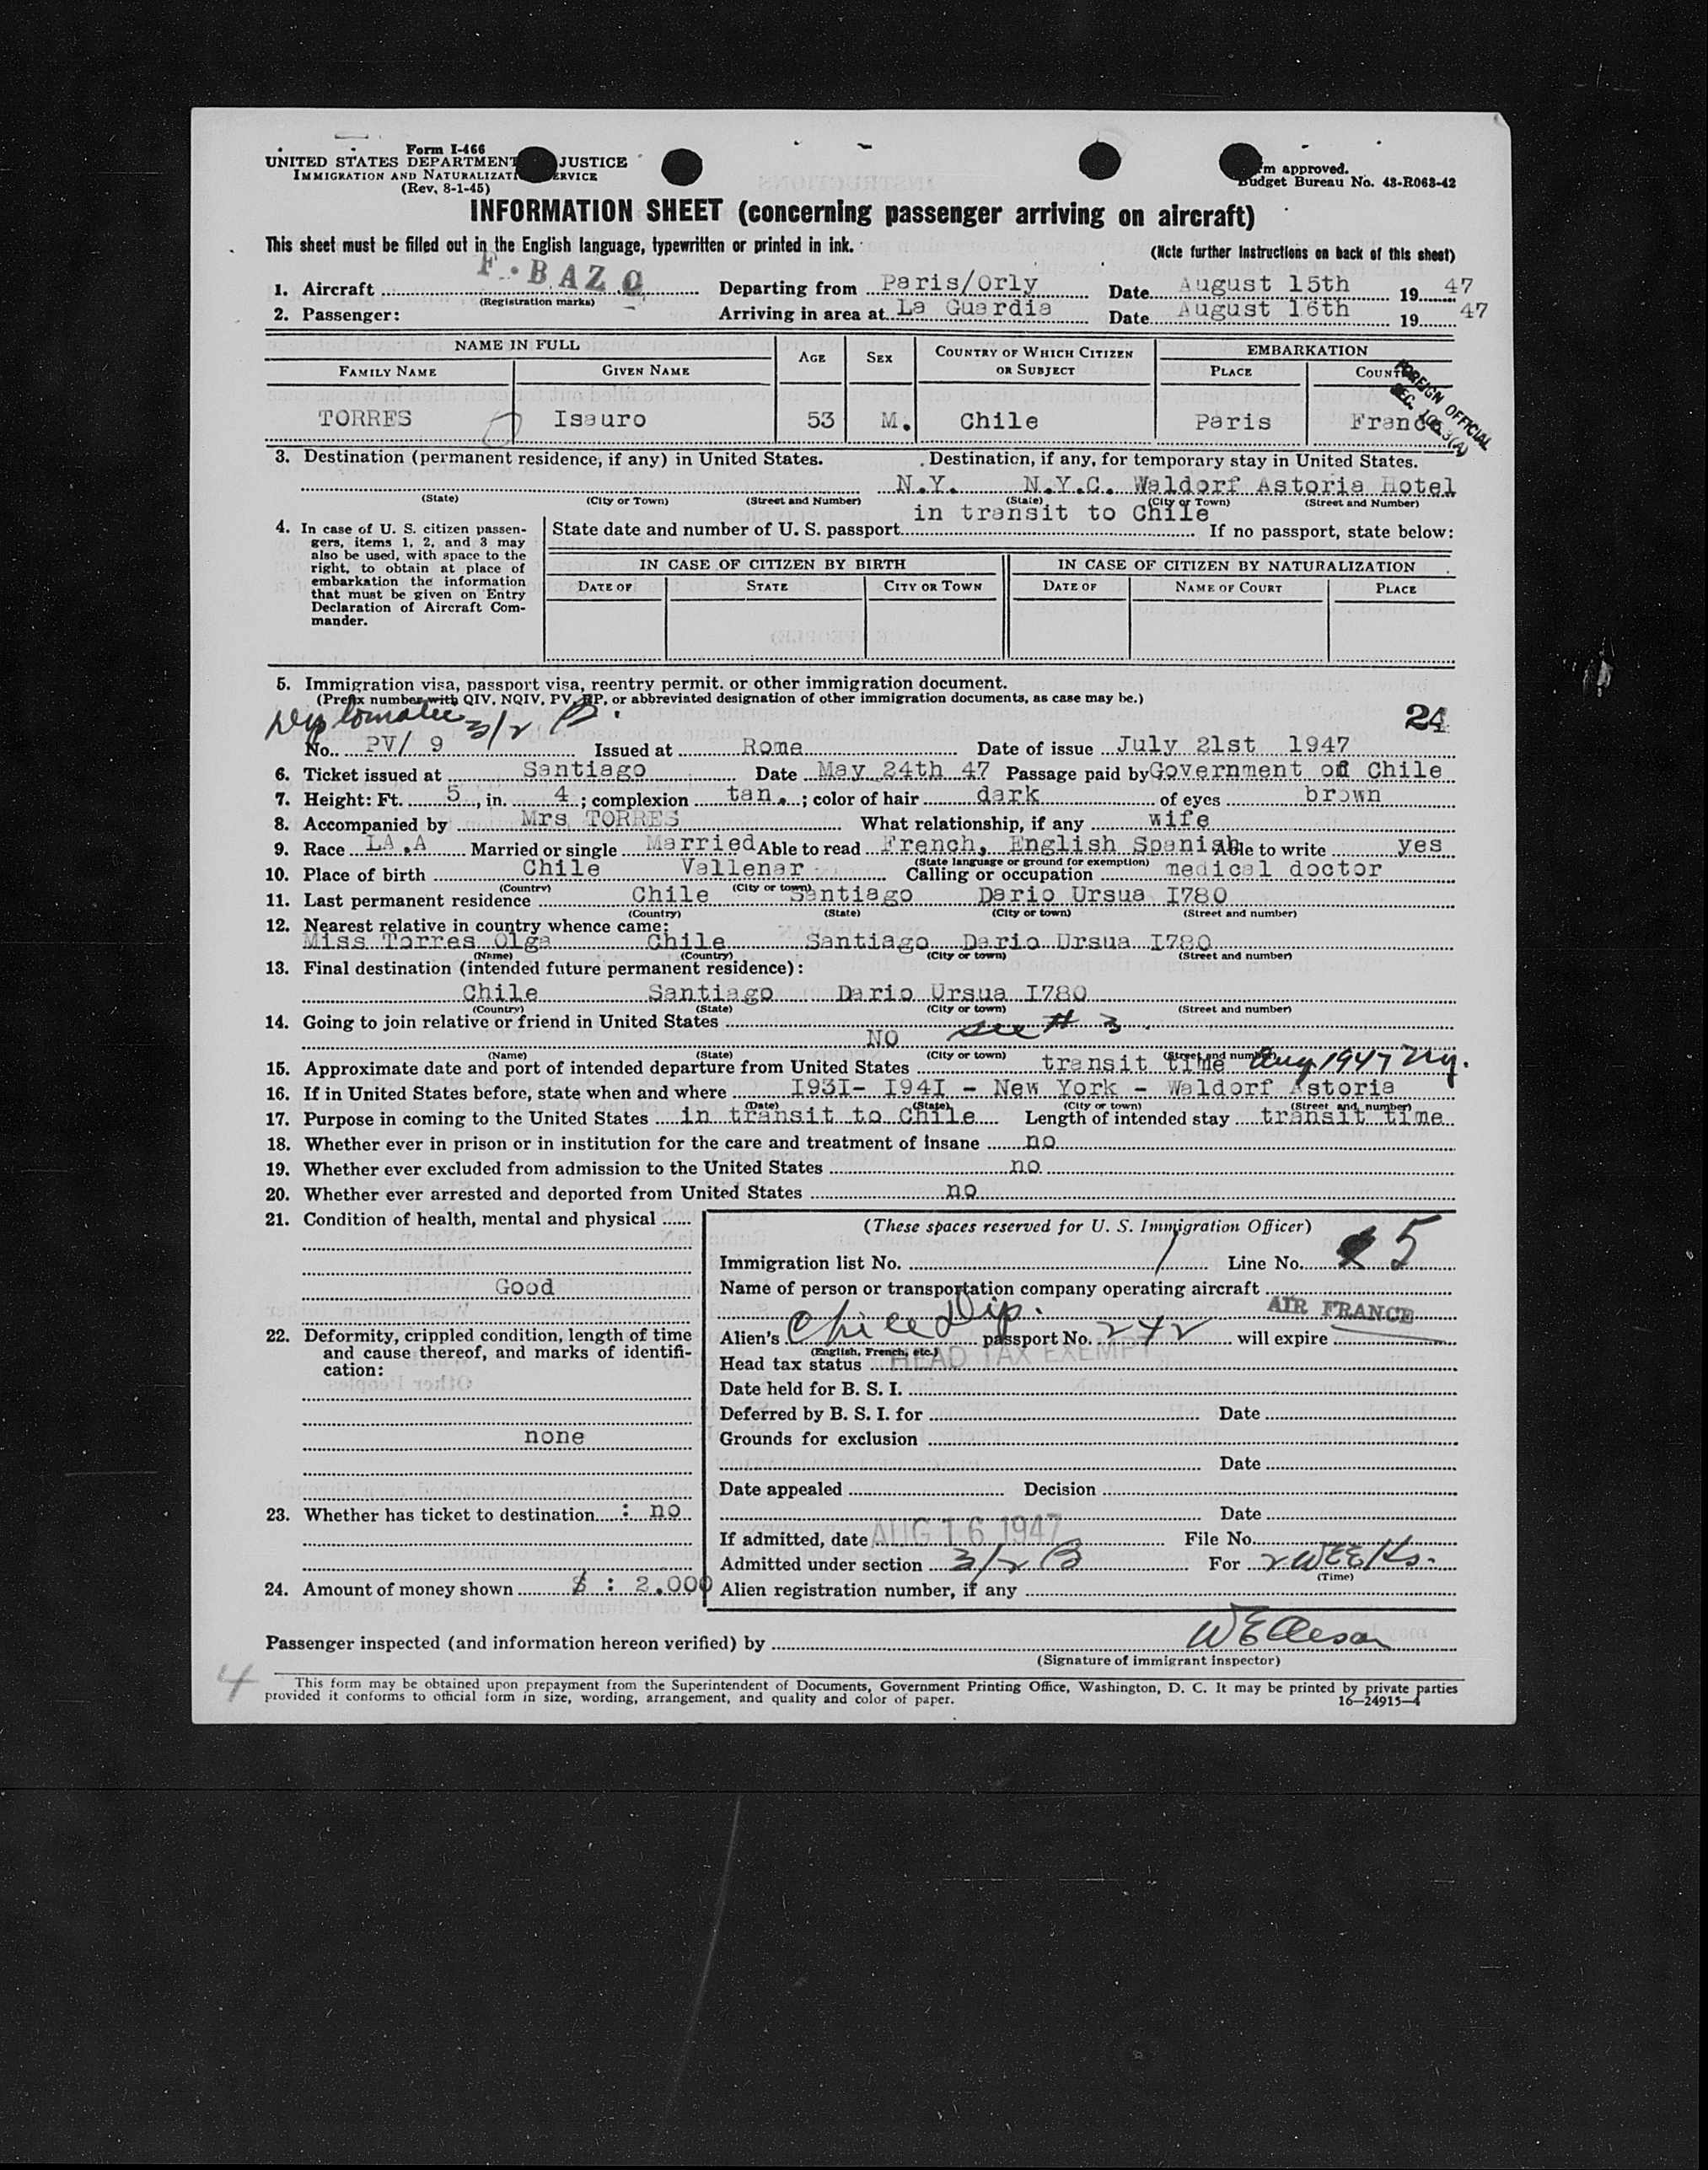 Form I-466
UNITED STATES DEPARTMENT JUSTICE
IMMIGRATION AND NATURALIZATI ERVICE
(Rev. 8-1-45)
rm approved.
Budget Bureau No. 43-R063-42
INFORMATION SHEET (concerning passenger arriving on aircraft)
This sheet must be filled out in the English language, typewritten or printed in ink.
(Note further instructions on back of this sheet)
1. Aircraft F.BAZQ Departing from Paris/Orly Date August 15th 1947
(Registration marks)
2. Passenger: Arriving in area at La Guardia Date August 16th 1947
NAME IN FULL AGE SEX COUNTRY OF WHICH CITIZEN OR SUBJECT EMBARKATION
FAMILY NAME GIVEN NAME PLACE COUNT
FOREIGN OFFICIAL
TORRES Isauro 53 M. Chile Paris France
3. Destination (permanent residence, if any) in United States. Destination, if any, for temporary stay in United States.
N.Y. N.Y.C. Waldorf Astoria Hotel
(State) (City or Town) (Street and Number) (State) (City or Town) (Street and Number)
in transit to Chile
4. In case of U. S. citizen passengers, items 1, 2, and 3 may also be used, with space to the right, to obtain at place of embarkation the information that must be given on Entry Declaration of Aircraft Commander.
State date and number of U. S. passport If no passport, state below:
IN CASE OF CITIZEN BY BIRTH IN CASE OF CITIZEN BY NATURALIZATION
DATE OF STATE CITY OR TOWN DATE OF NAME OF COURT PLACE
5. Immigration visa, passport visa, reentry permit, or other immigration document.
(Prefix number with QIV, NQIV, PV, RP, or abbreviated designation of other immigration documents, as case may be.)
Diplomatic 3/2 B.
24
No. PV/ 9 Issued at Rome Date of issue July 21st 1947
6. Ticket issued at Santiago Date May 24th 47 Passage paid by Government of Chile
7. Height: Ft. 5, in. 4; complexion tan.; color of hair dark of eyes brown
8. Accompanied by Mrs TORRES What relationship, if any wife
9. Race LA.A Married or single Married Able to read French, English Spanish Able to write yes
(State language or ground for exemption)
10. Place of birth Chile Vallenar Calling or occupation medical doctor
(Country) (City or town)
11. Last permanent residence Chile Santiago Dario Ursua I780
(Country) (State) (City or town) (Street and number)
12. Nearest relative in country whence came:
Miss Torres Olga Chile Santiago Dario Ursua I780
(Name) (Country) (City or town) (Street and number)
13. Final destination (intended future permanent residence):
Chile Santiago Dario Ursua I780
(Country) (State) (City or town) (Street and number)
14. Going to join relative or friend in United States
NO see # 3
(Name) (State) (City or town) (Street and number)
15. Approximate date and port of intended departure from United States transit time Aug 1947 Ny.
16. If in United States before, state when and where I93I- I94I - New York - Waldorf Astoria
(Date) (State) (City or town) (Street and number)
17. Purpose in coming to the United States in transit to Chile Length of intended stay transit time
18. Whether ever in prison or in institution for the care and treatment of insane no
19. Whether ever excluded from admission to the United States no
20. Whether ever arrested and deported from United States no
21. Condition of health, mental and physical
Good
22. Deformity, crippled condition, length of time and cause thereof, and marks of identification:
none
23. Whether has ticket to destination : no
24. Amount of money shown $ : 2.000
(These spaces reserved for U. S. Immigration Officer)
Immigration list No. 1 Line No. 5
Name of person or transportation company operating aircraft
AIR FRANCE
Alien's Chile Dip. passport No. 242 will expire
(English, French, etc.)
Head tax status HEAD TAX EXEMPT
Date held for B. S. I.
Deferred by B. S. I. for Date
Grounds for exclusion
Date
Date appealed Decision
Date
If admitted, date AUG 16 1947 File No.
Admitted under section 3/2 B For 2 WEEKs.
(Time)
Alien registration number, if any
Passenger inspected (and information hereon verified) by
(Signature of immigrant inspector)
4
This form may be obtained upon prepayment from the Superintendent of Documents, Government Printing Office, Washington, D. C. It may be printed by private parties
provided it conforms to official form in size, wording, arrangement, and quality and color of paper. 16—24915-4